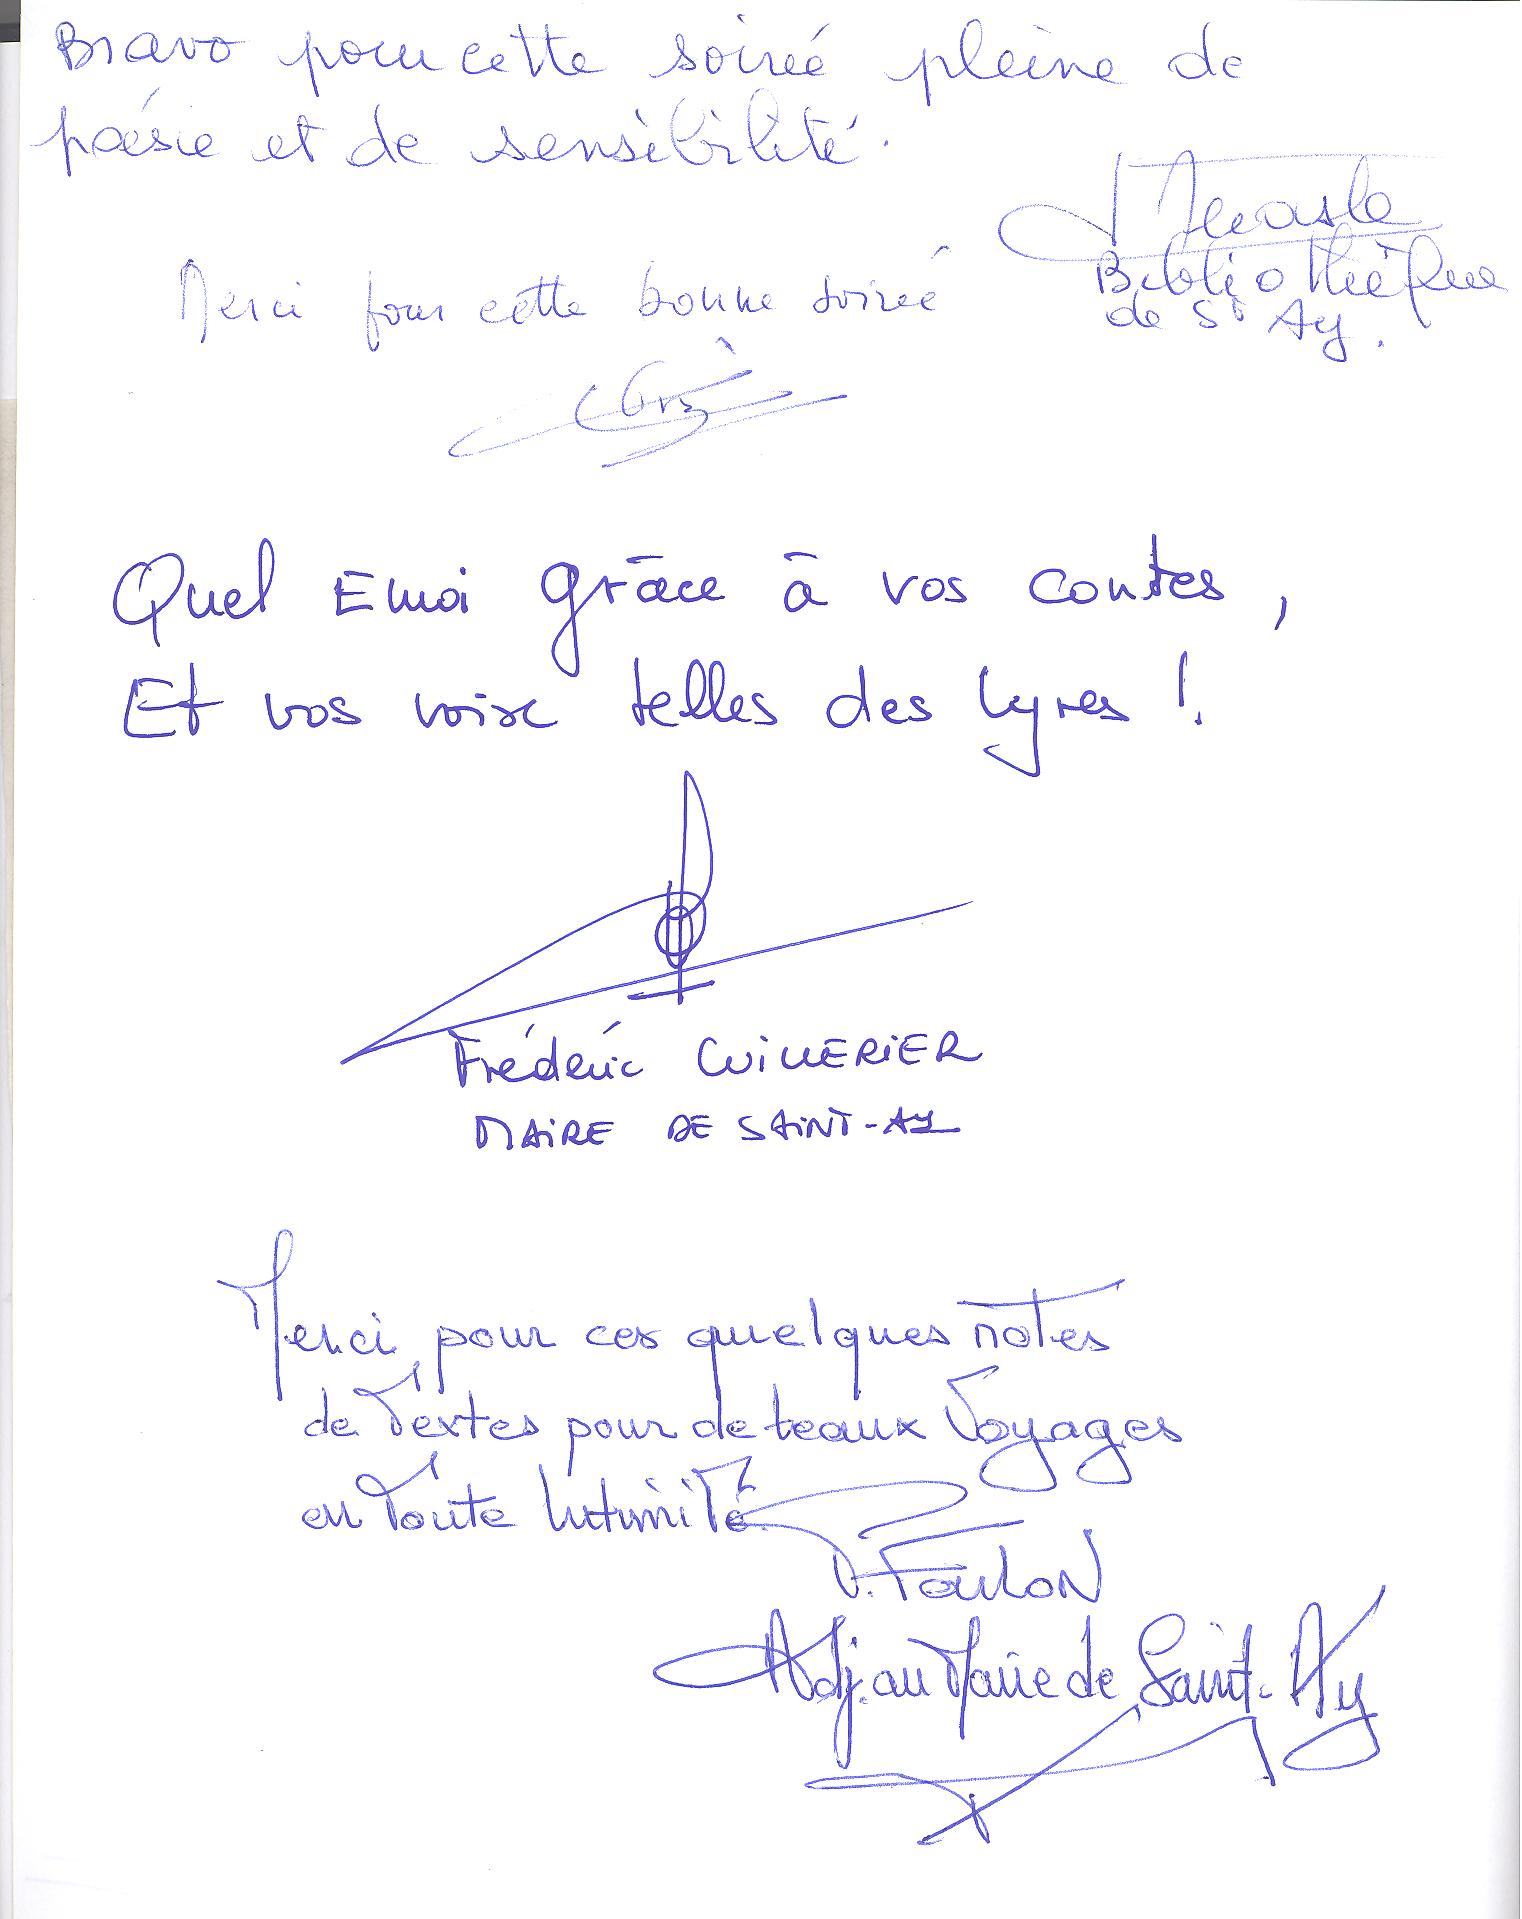 Bravo pour cette soirée pleine de
poésie et de sensibilité.
Bibliothèque
de St Ay.
Merci pour cette bonne soirée
Quel Emoi grâce à vos contes,
Et vos voix telles des lyres !
Frédéric CUILLERIER
MAIRE DE SAINT-AY
Merci pour ces quelques notes
de Textes pour de beaux Voyages
en Toute Intimité.
Foulon
Adj. au Maire de Saint-Ay